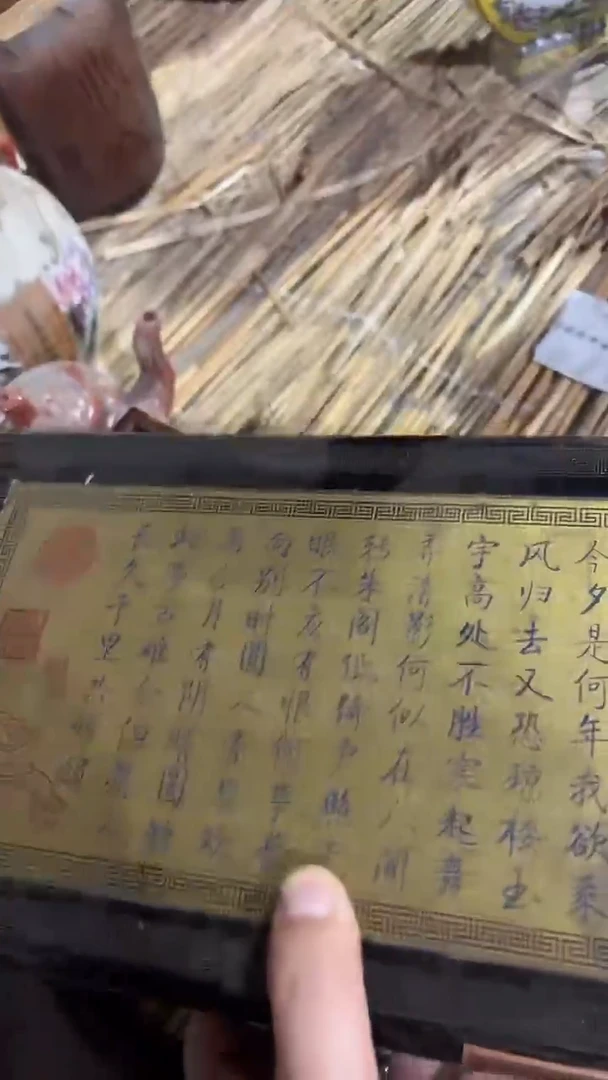 今夕是何年我欲乘
风归去又恐琼楼玉
宇高处不胜寒起舞
弄清影何似在人间
转朱阁低绮户照无
眠不应有恨何事长
向别时圆人有悲欢
离合月有阴晴圆缺
此事古难全但愿人
长久千里共婵娟